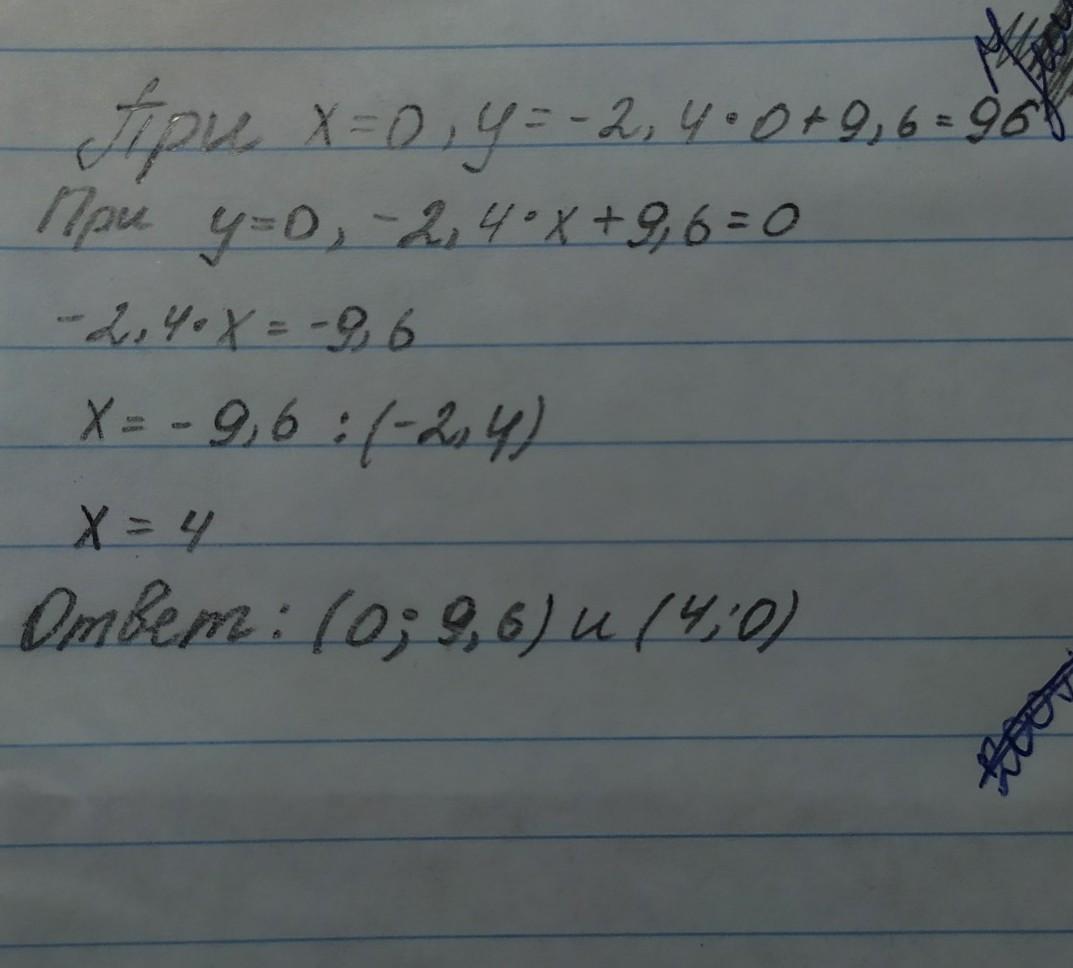 При x=0, y=-2,4·0+9,6=96
При y=0, -2,4·x+9,6=0
-2,4·x=-9,6
x=-9,6:(-2,4)
x=4
Ответ: (0; 9,6) и (4;0)